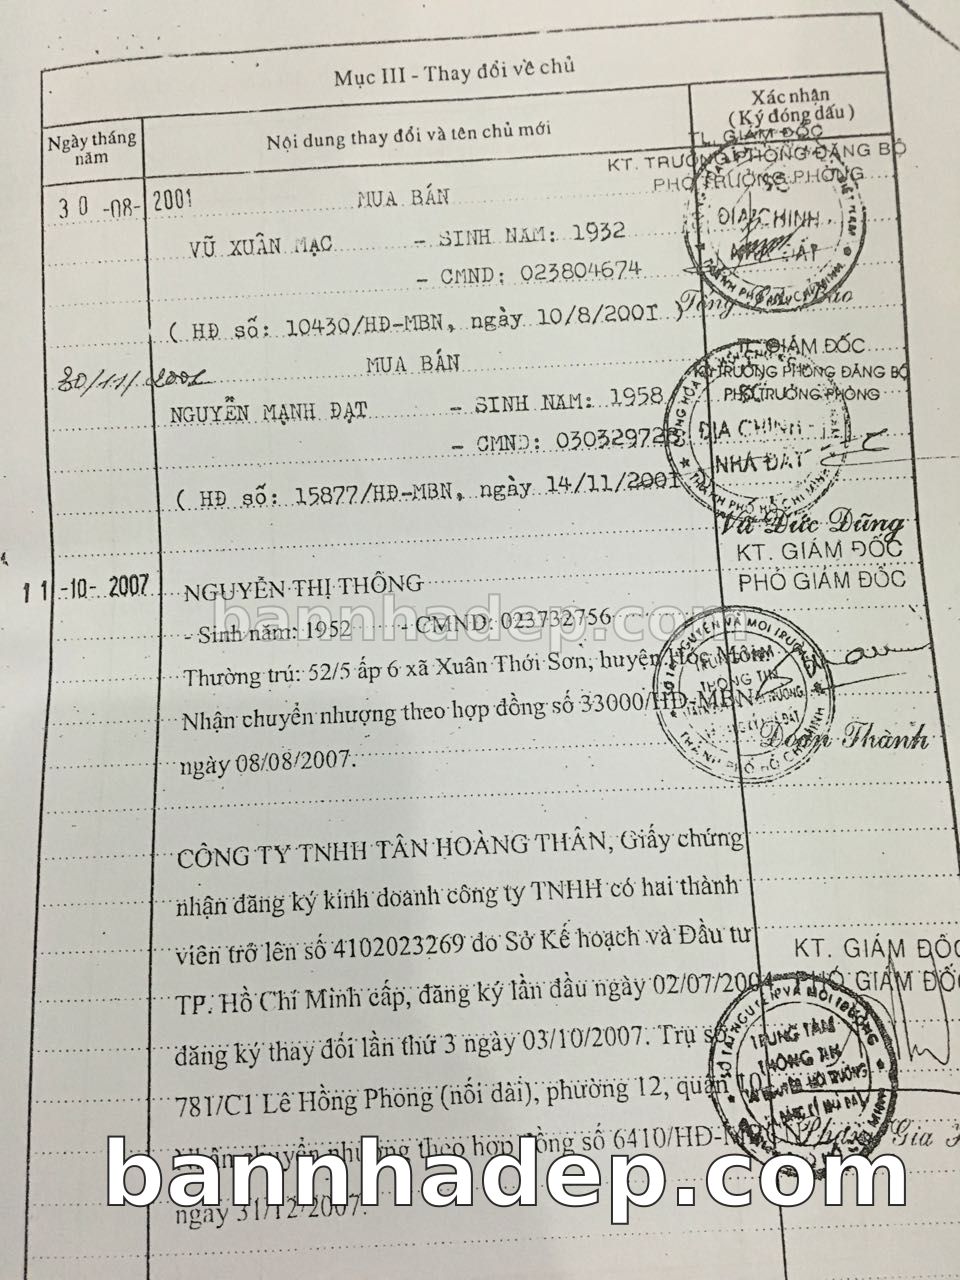 Mục III - Thay đổi về chủ
Ngày tháng năm
Nội dung thay đổi và tên chủ mới
Xác nhận
(Ký đóng dấu)
TL. GIÁM ĐỐC
KT. TRƯỞNG PHÒNG ĐĂNG BỘ
PHÓ TRƯỞNG PHÒNG
30 -08- 2001
MUA BÁN
VŨ XUÂN MẠC - SINH NĂM: 1932
- CMND: 023804674
ĐỊA CHÍNH
( HĐ số: 10430/HĐ-MBN, ngày 10/8/2001 )
30/11/2001
MUA BÁN
TL. GIÁM ĐỐC
KT. TRƯỞNG PHÒNG ĐĂNG BỘ
PHÓ TRƯỞNG PHÒNG
NGUYỄN MẠNH ĐẠT - SINH NĂM: 1958
- CMND: 03032972
ĐỊA CHÍNH
NHÀ ĐẤT
THÀNH PHỐ HỒ CHÍ MINH
( HĐ số: 15877/HĐ-MBN, ngày 14/11/2001
Vũ Đức Dũng
KT. GIÁM ĐỐC
PHÓ GIÁM ĐỐC
11 -10- 2007
NGUYỄN THỊ THÔNG
bannhadep.com
- Sinh năm: 1952 - CMND: 023732756
Thường trú: 52/5 ấp 6 xã Xuân Thới Sơn, huyện Hóc Môn
Nhận chuyển nhượng theo hợp đồng số 33000/HĐ-MBN
ngày 08/08/2007.
SỞ TÀI NGUYÊN VÀ MÔI TRƯỜNG
TRUNG TÂM
THÔNG TIN
THÀNH PHỐ HỒ CHÍ MINH
Đoàn Thành
CÔNG TY TNHH TÂN HOÀNG THÂN, Giấy chứng
nhận đăng ký kinh doanh công ty TNHH có hai thành
viên trở lên số 4102023269 do Sở Kế hoạch và Đầu tư
TP. Hồ Chí Minh cấp, đăng ký lần đầu ngày 02/07/2004,
đăng ký thay đổi lần thứ 3 ngày 03/10/2007. Trụ sở
781/C1 Lê Hồng Phong (nối dài), phường 12, quận 10
Nhận chuyển nhượng theo hợp đồng số 6410/HĐ-MBN
ngày 31/12/2007.
KT. GIÁM ĐỐC
PHÓ GIÁM ĐỐC
SỞ TÀI NGUYÊN VÀ MÔI TRƯỜNG
TRUNG TÂM
THÔNG TIN
Gia
bannhadep.com